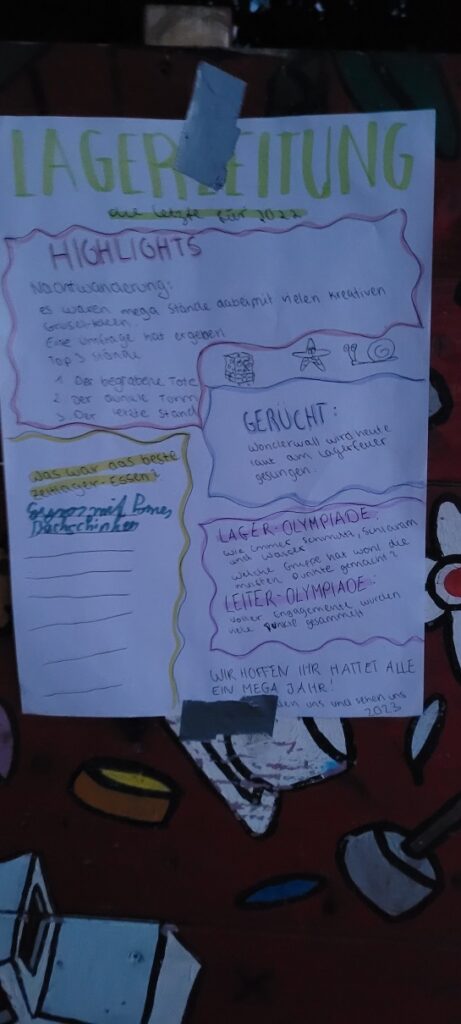 LAGERZEITUNG
die letzte für 2022
HIGHLIGHTS
Nachtwanderung:
es waren mega Stände dabei mit vielen kreativen
Grusel-Ideen.
Eine Umfrage hat ergeben
Top 3 Stände
1. Der begrabene Tote
2. Der dunkle Turm
3. Der letzte Stand
GERÜCHT:
Wonderwall wird heute
laut am Lagerfeuer
gesungen.
Was war das beste
Zeltlager-Essen?
mit
LAGER-OLYMPIADE:
Wie immer Schmutz, Schlamm
und Wasser
Welche Gruppe hat wohl die
meisten Punkte gemacht?
LEITER-OLYMPIADE:
voller Engagemente wurden
viele Punkte gesammelt
WIR HOFFEN IHR HATTET ALLE
EIN MEGA JAHR!
uns und sehen uns
2023